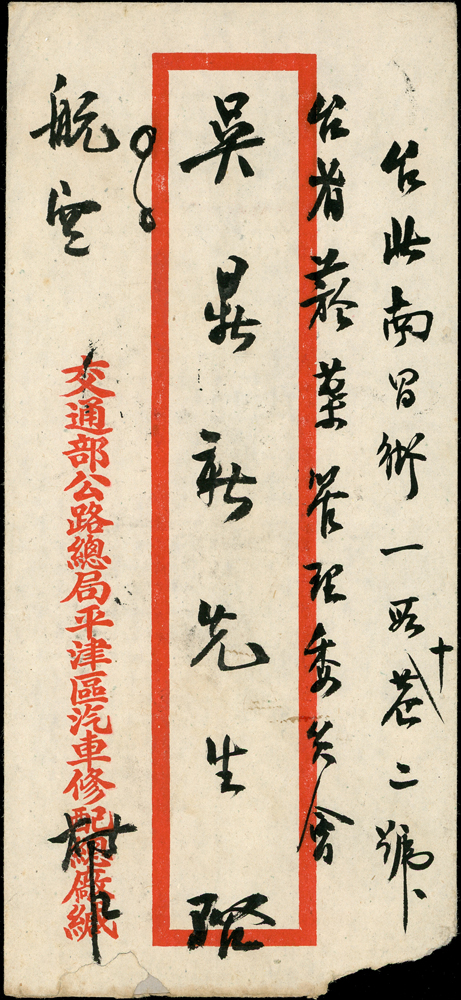 台北南昌街一段十巷二號
台省菸葉管理委員會
吳鼎新先生 啓
航空
交通部公路總局平津區汽車修配總廠緘